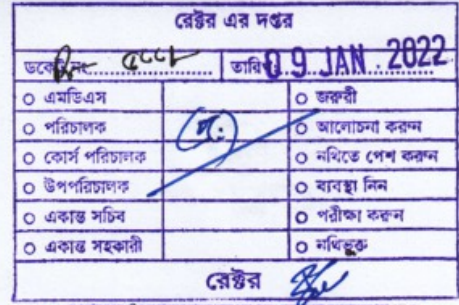 রেক্টর এর দপ্তর
ডকেট নং তারিখ 09 JAN 2022
০ এমডিএস ০ জরুরী
০ পরিচালক ০ আলোচনা করুন
০ কোর্স পরিচালক ০ নথিতে পেশ করুন
০ উপপরিচালক ০ ব্যবস্থা নিন
০ একান্ত সচিব ০ পরীক্ষা করুন
০ একান্ত সহকারী ০ নথিভুক্ত
রেক্টর